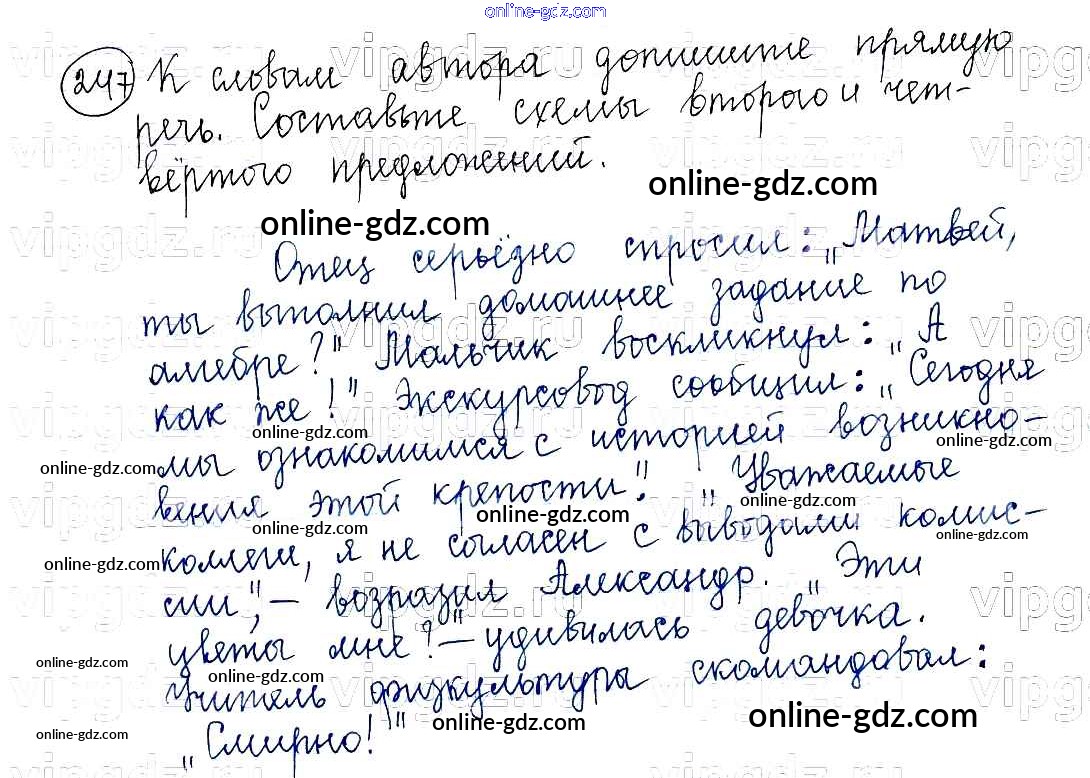 online-gdz.com
247 К словам автора допишите прямую
речь. Составьте схемы второго и чет-
вёртого предложений.
online-gdz.com
online-gdz.com
Отец серьёзно спросил: „Матвей,
ты выполнил домашнее задание по
алгебре?" Мальчик воскликнул: „А
как же!" Экскурсовод сообщил: „Сегодня
online-gdz.com
мы ознакомимся с историей возникно-
online-gdz.com
вения этой крепости". „Уважаемые
online-gdz.com online-gdz.com online-gdz.com
коллеги, я не согласен с выводами комис-
online-gdz.com online-gdz.com
сии", – возразил Александр. „Эти
цветы мне?" – удивилась девочка.
online-gdz.com online-gdz.com
Учитель физкультуры скомандовал:
online-gdz.com online-gdz.com online-gdz.com
„Смирно!"
vipgdz.ru